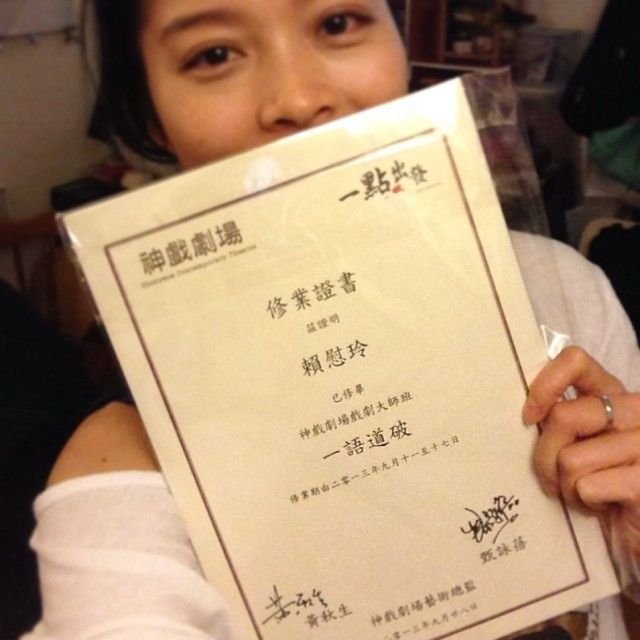 一點出發
神戲劇場
Dionysus Contemporary Theatre
修業證書
茲證明
賴慰玲
已修畢
神戲劇場戲劇大師班
一語道破
修業期由二零一三年九月十一至十七日
甄詠蓓
黃秋生
神戲劇場藝術總監
二零一三年九月廿八日